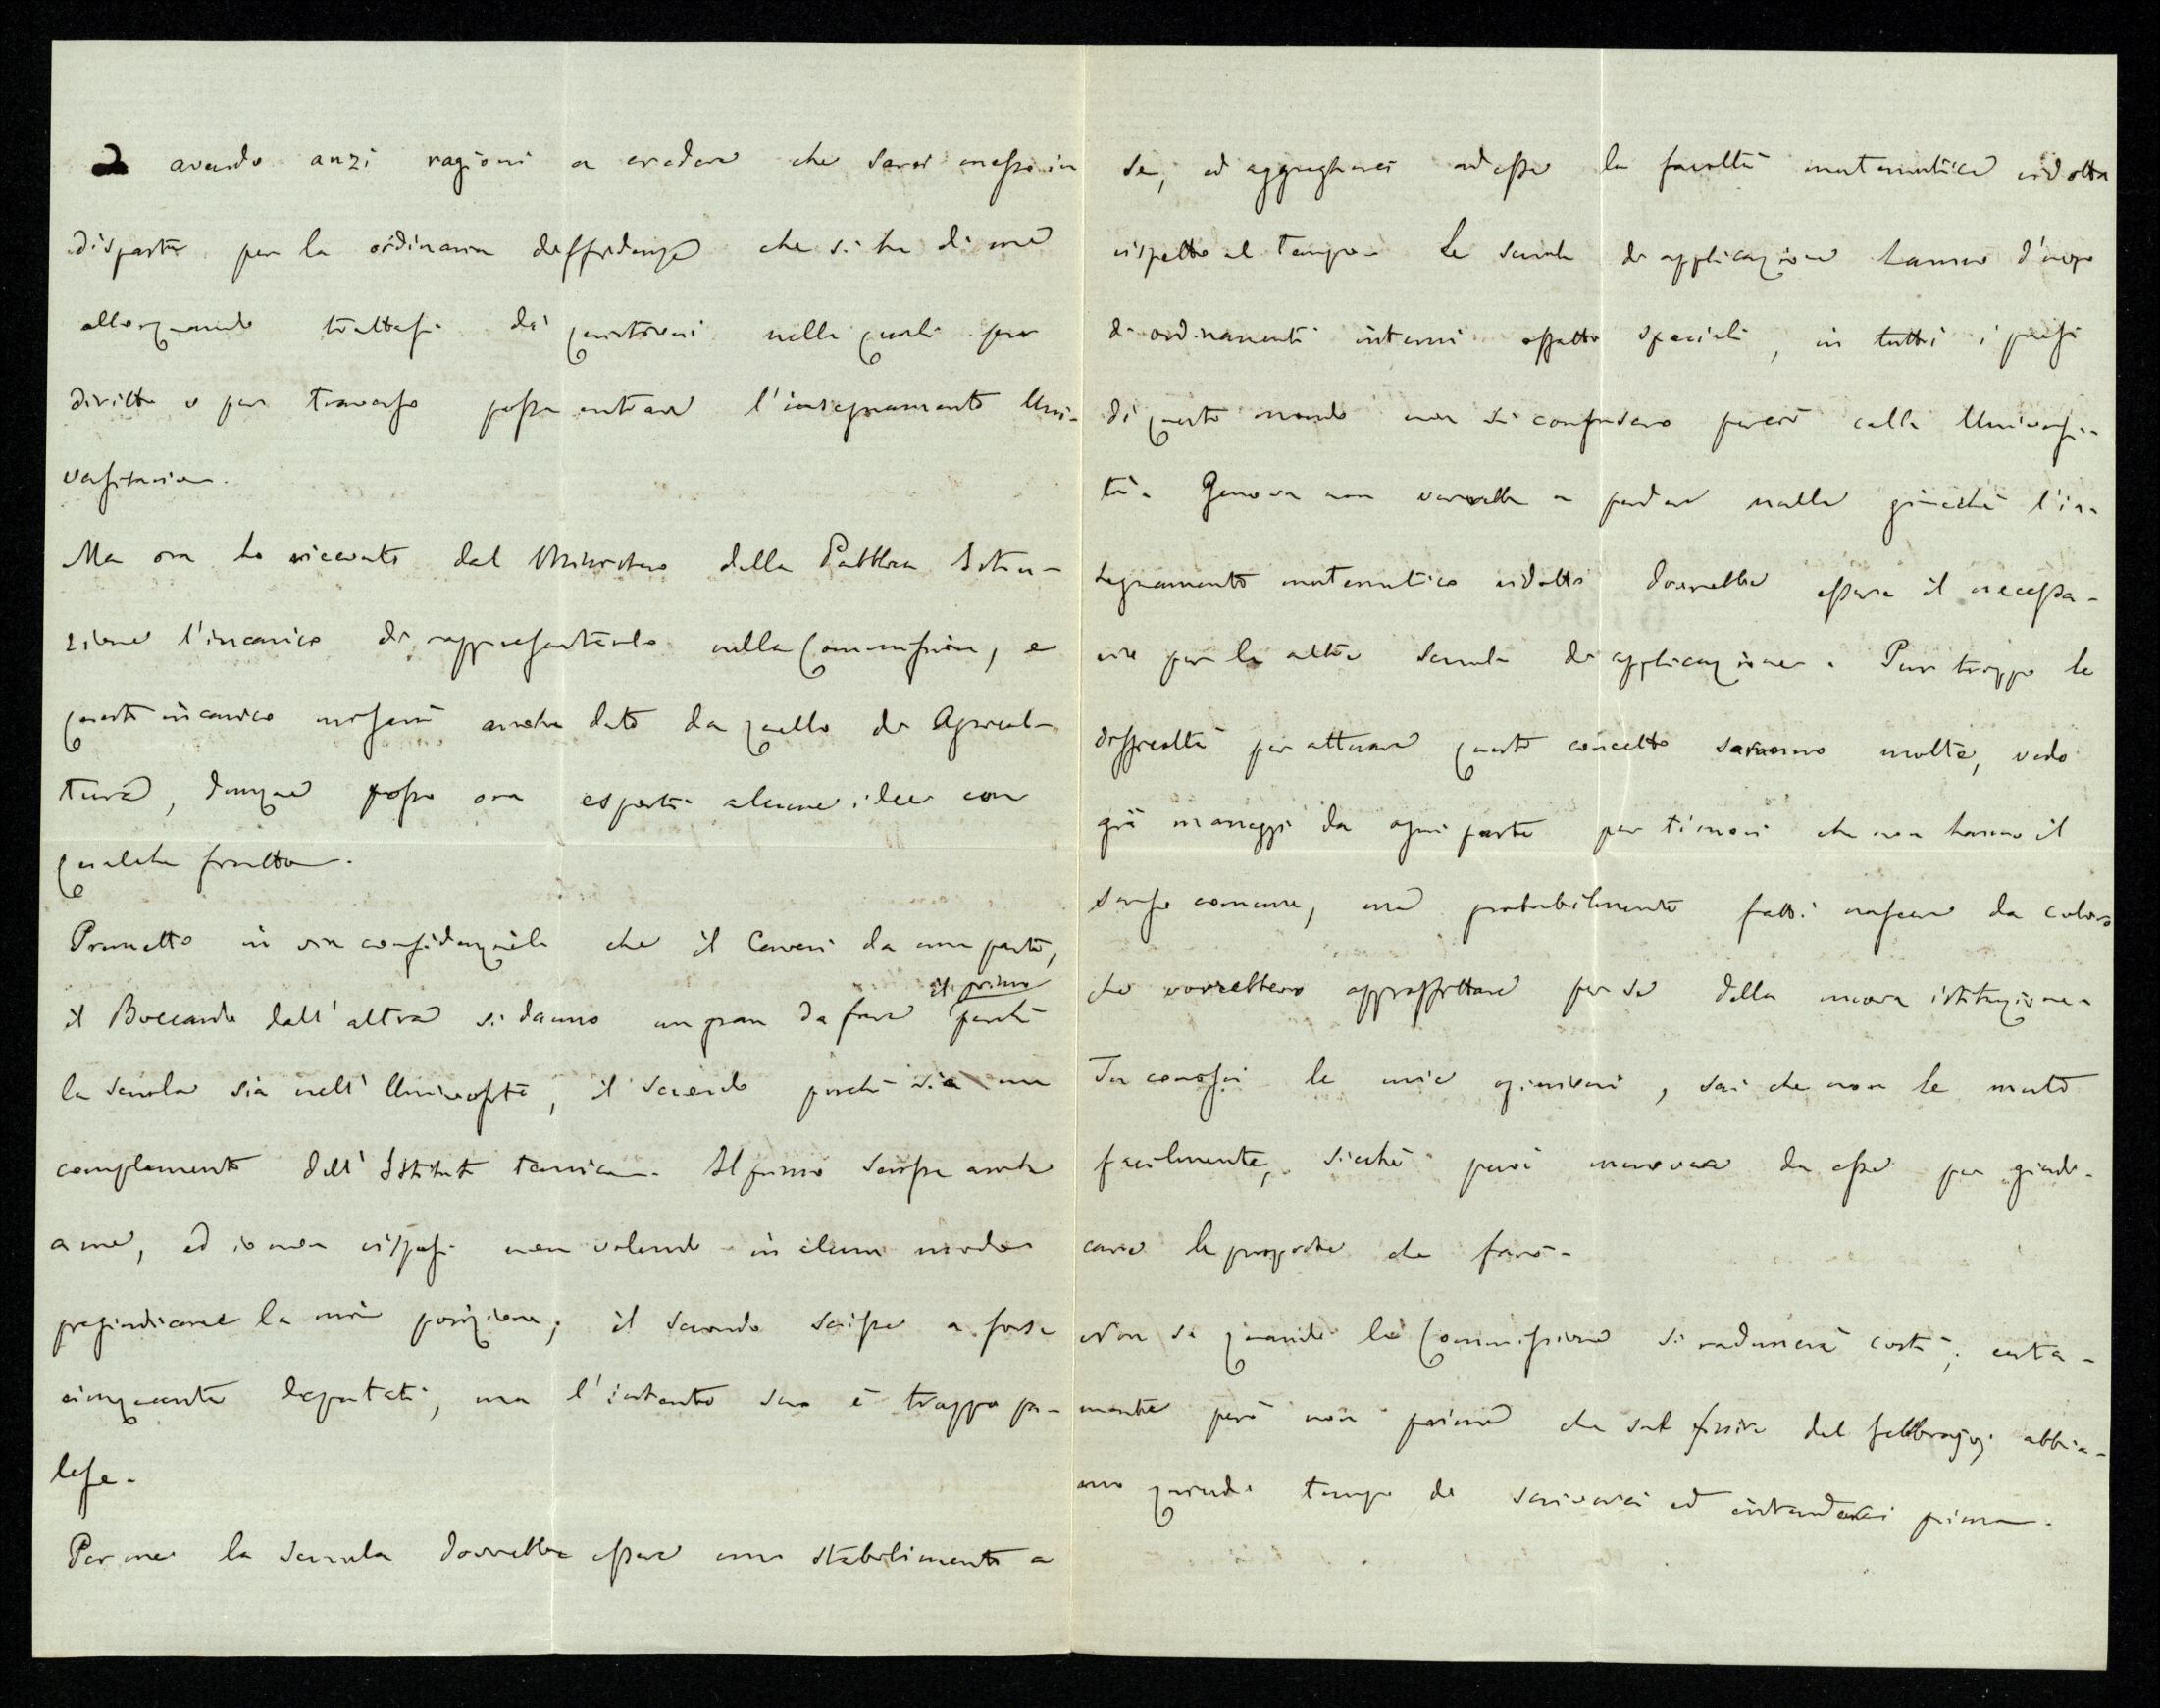 avendo anzi ragioni a credere che sarei messo in
disparte per la ordinaria diffidenza che si ha di me
allorquando trattasi di quistioni nelle quali per
diritto o per traverso possa entrare l'insegnamento Uni-
versitario.
Ma ora ho ricevuto dal Ministero della Pubblica Istru-
zione l'incarico di rappresentarlo nella Commissione, e
questo incarico mi sarà anche dato da quello di Agricol-
tura, dunque posso ora esporti alcune idee con
qualche frutto.
Premetto in via confidenziale che il Caveri da una parte,
il Boccardo dall'altra si danno un gran da fare il primo perchè
la scuola sia nell'Università, il secondo perchè sia un
complemento dell'Istituto tecnico. Il primo scrisse anche
a me, ed io non risposi non volendo in alcun modo
pregiudicare la mia posizione; il secondo scrisse a forse
cinquanta deputati, ma l'intento suo è troppo pa-
lese.
Per me la scuola dovrebbe essere uno stabilimento a
se, ed aggregherei ad essa la facoltà matematica ridotta
rispetto al tempo. Le scuole di applicazione hanno d'uopo
di ordinamenti interni affatto speciali, in tutti i paesi
di questo mondo non si confusero perciò colle Universi-
tà. Genova non verrebbe a perdere nulla giacchè l'in-
segnamento matematico ridotto dovrebbe essere il necessa-
rio per le altre scuole di applicazione. Pur troppo le
difficoltà per attuare questo concetto saranno molte, vedo
già maneggi da ogni parte per timori che non hanno il
senso comune, ma probabilmente fatti nascere da coloro
che vorrebbero approfittare per se della nuova istituzione.
Tu conosci le mie opinioni, sai che non le muto
facilmente, sicchè puoi muovere da esse per giudi-
care le proposte che farò.
Non so quando la Commissione si radunerà costì; certa-
mente però non prima che sul finire del febbrajo; abbia-
mo quindi tempo di scriverci ed intenderci prima.